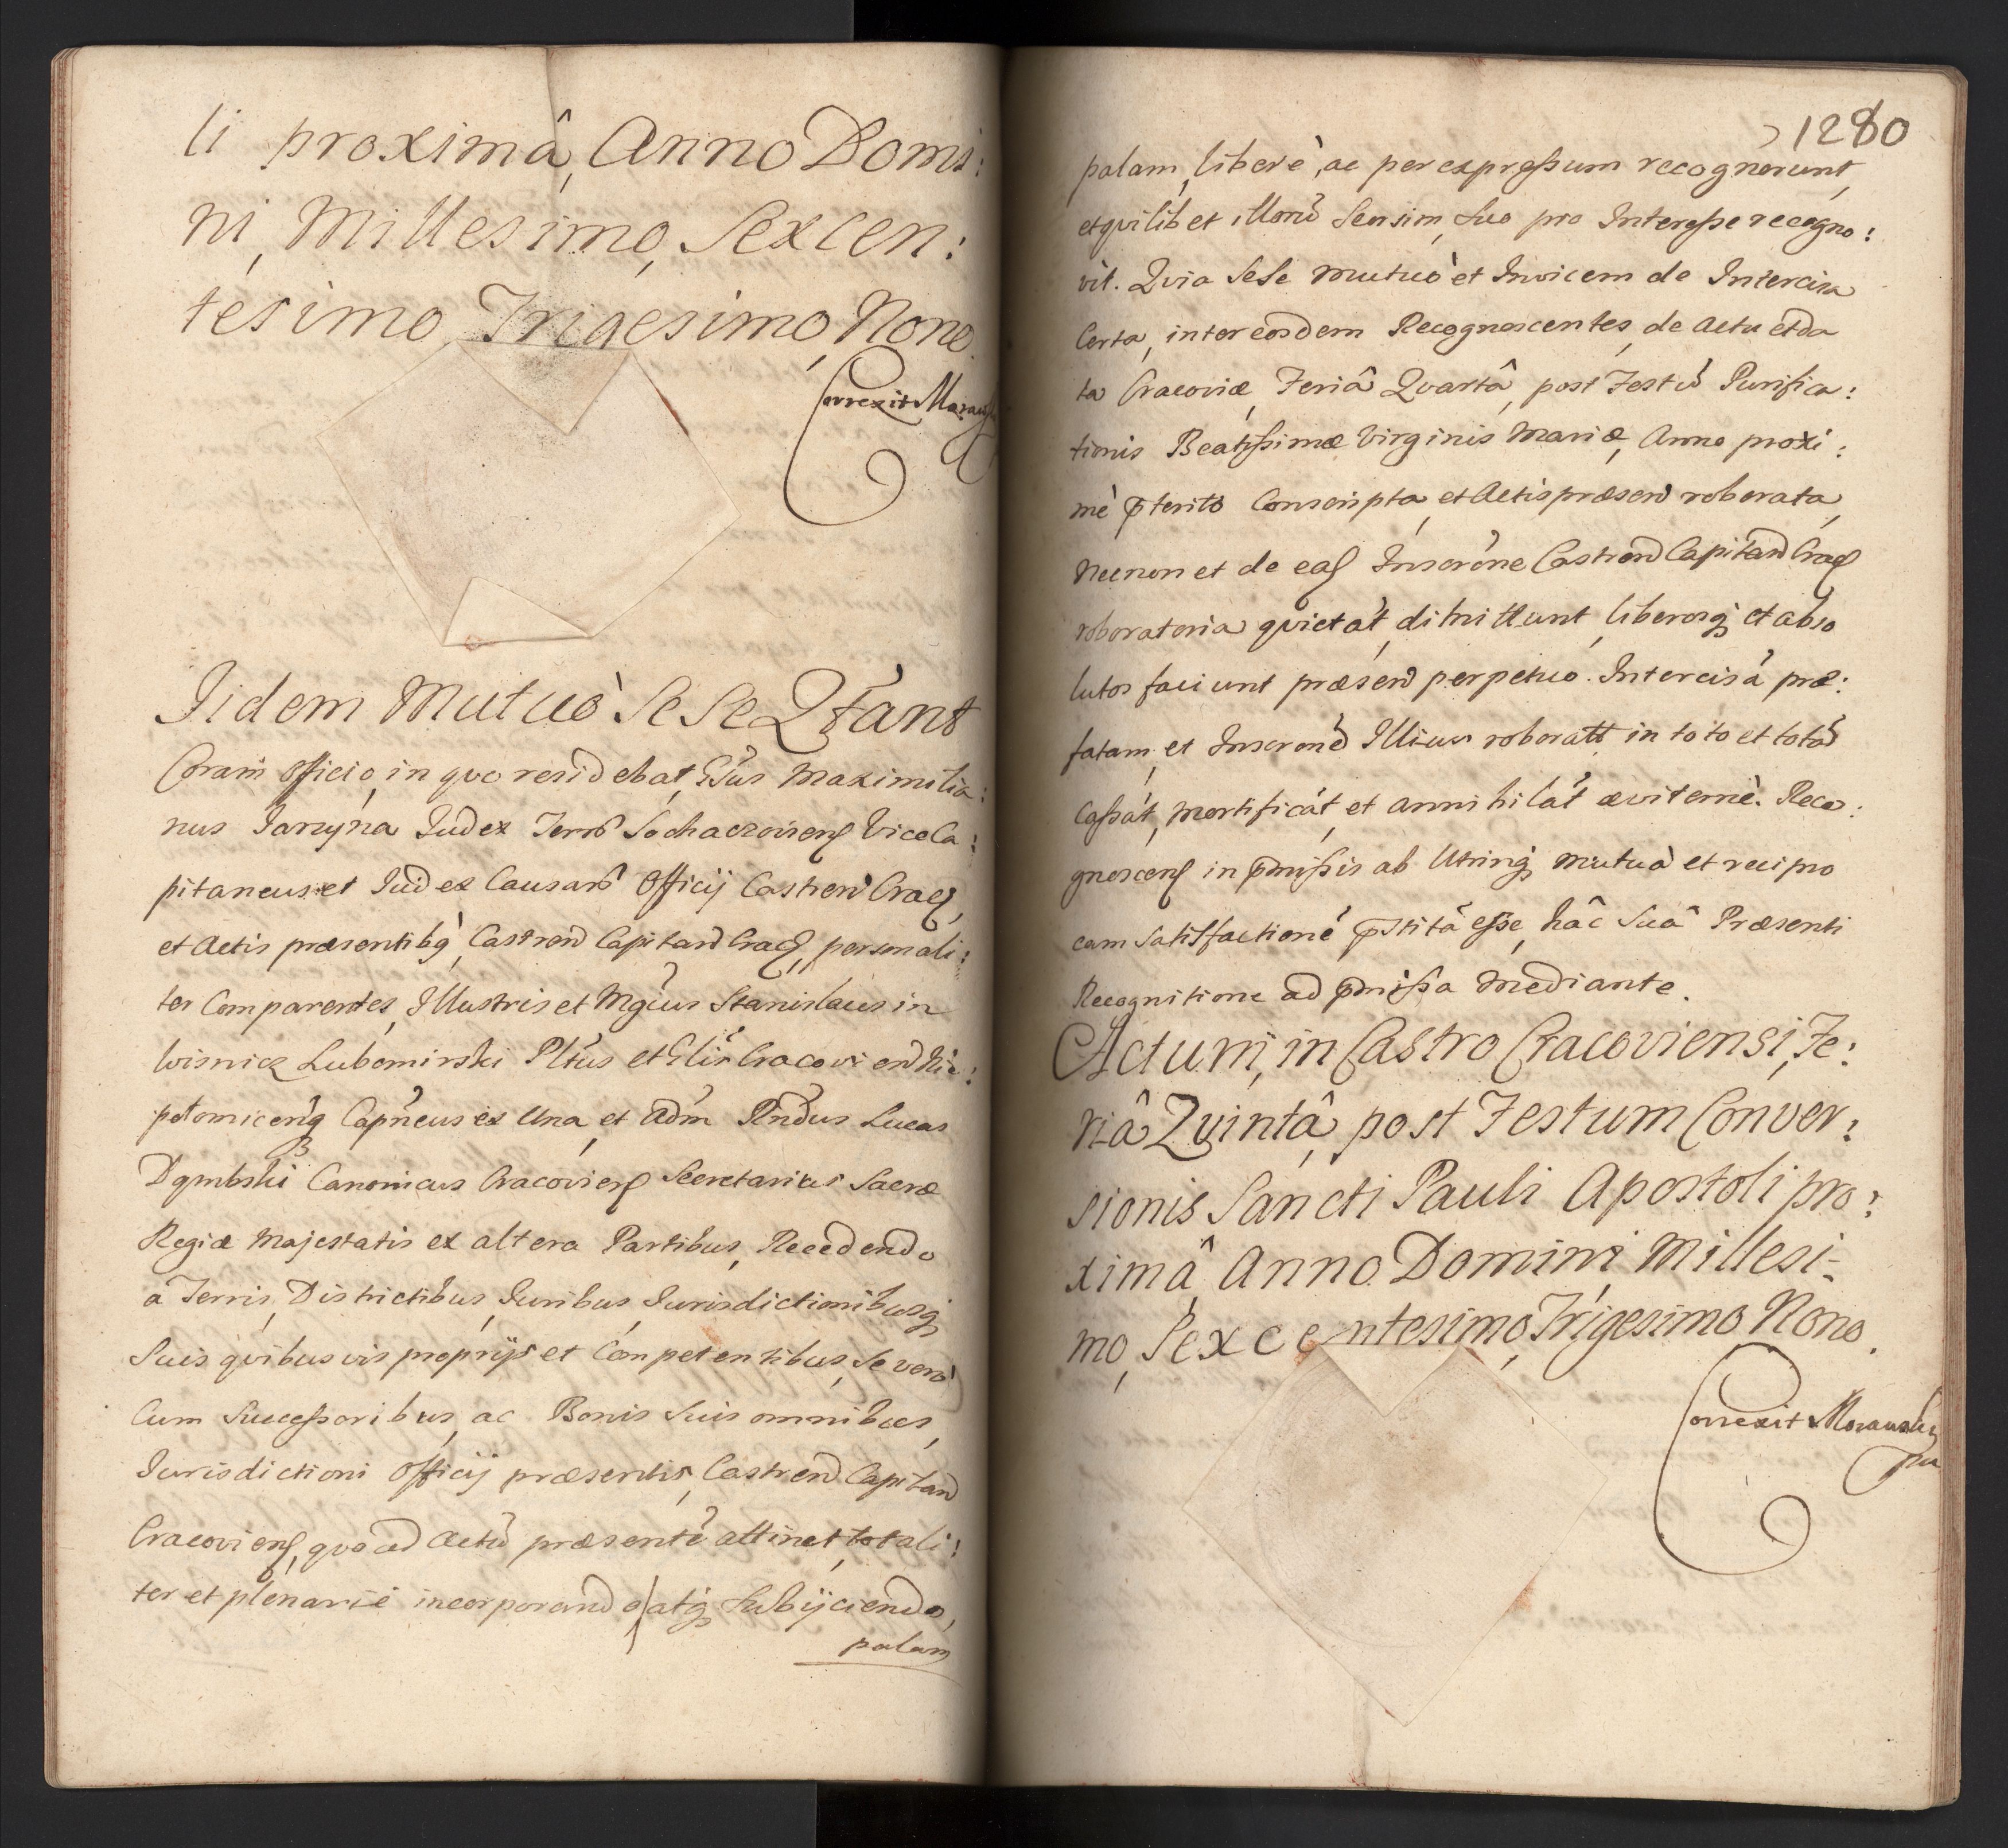 li proximâ, Anno Domi:
ni, Millesimo, Sexcen:
tesimo, Trigesimo, Nono.
Correxit
Iidem Mutuò Sese Qttant
Coram officio, in quo residebat, Gsus Maximilia:
nus Jarzyna Judex Terrs Sochaczoviens ViceCa:
pitaneus et Judex Causars Officij Castren Crac,
et Actis præsentibq, Castren Capitan Crac, personali:
ter Comparentes, Illustris et Mgcus Stanislaus in
Wisnicz Lubomirski Pltus et Glis Cracovien
Capneus ex Una, et Adm Rndus Lucas
Dąmbski Canonicus Cracoviens Secretarius Sacræ
Regiæ Majestatis ex altera Partibus, Recedendo
à Terris, Districtibus, Juribus, Jurisdictionibusq
Suis quibusvis proprijs et Competentibus, Se verò
Cum Successoribus, ac Bonis Suis omnibus,
Jurisdictioni Officij præsentis, Castren Capitan
Cracoviens, quoad Actū præsentē attinet, totali:
ter et plenariè incorporando, atq Subijciendo,
palam
1280
palam, liberè, ac per expressum recognorunt,
et quilibet illorū Seorsim, Suo pro Interesse recogno:
vit. Quia Sese mutuò et Invicem de Intercisa
Certa, inter eosdem Recognoscentes, de Actu et da
ta Cracoviæ, Feriâ Quartâ, post Festū Purifica:
tionis Beatissimæ Virginis Mariæ, Anno proxi:
mè pterito Conscripta, et Actis præsen roborata,
Necnon et de eas Inscrōne Castren Capitan Crac
roboratoria quietāt, dimittunt, liberosq et abso
lutos faciunt præsen perpetuo. Intercisā præ:
fatam, et Inscronē Illius roboratt in toto et totā
Cassāt, mortificāt, et annihilāt æviternè. Reco:
gnoscens in pmissis ab Utrinq mutuà et recipro
cam Satisfactionē pstitā esse, hâc Suâ Præsenti
Recognitione ad pmissa mediante.
Actum, in Castro Cracoviensi, Fe:
riâ Quintâ, post Festum Conver:
sionis Sancti Pauli Apostoli pro:
ximâ, Anno Domini Millesi-
mo, Sexcentesimo, Trigesimo Nono.
Correxit